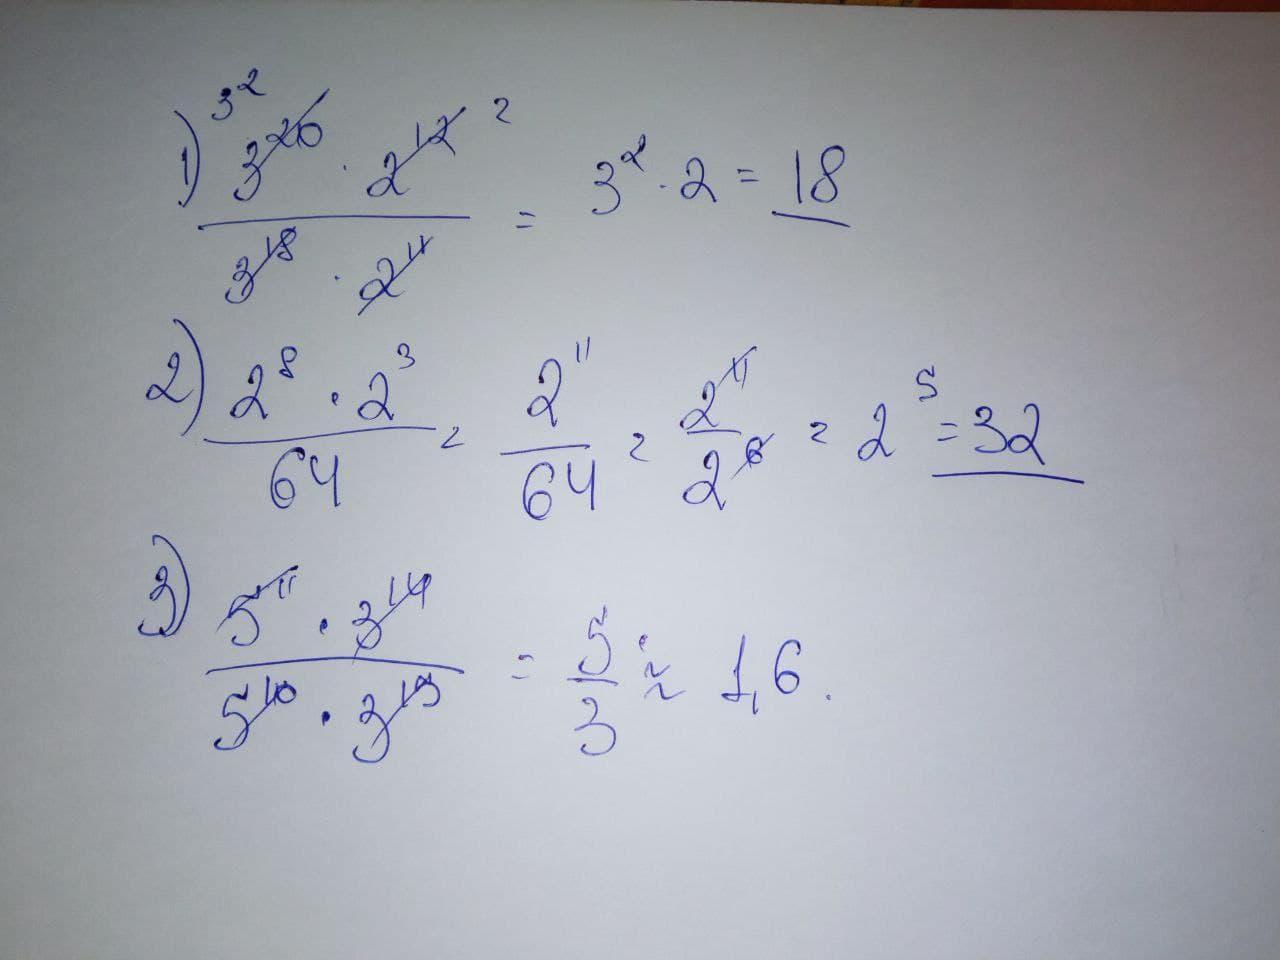 1) 3² 3²⁰ · 2¹² 2 / 3¹⁸ · 2¹¹ = 3² · 2 = 18
2) 2⁸ · 2³ / 64 = 2¹¹ / 64 = 2¹¹ / 2⁶ = 2⁵ = 32
3) 5¹¹ · 3¹⁴ / 5¹⁰ · 3¹⁵ = 5 / 3 ≈ 1,6.